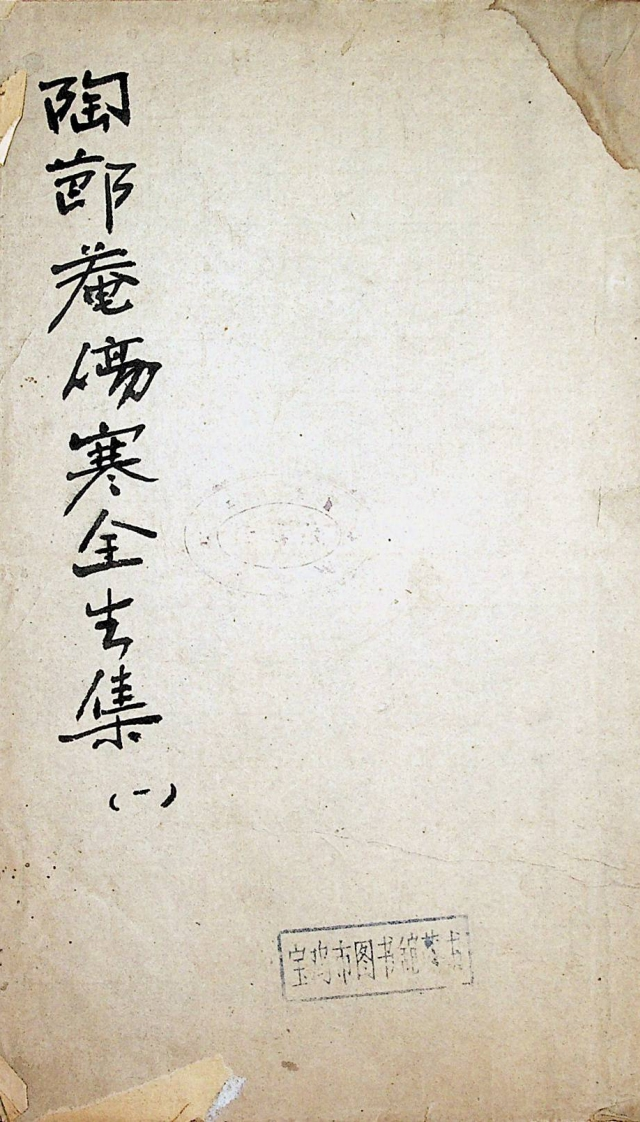 陶節菴傷寒全生集
(一)
宝鸡市图书馆藏书